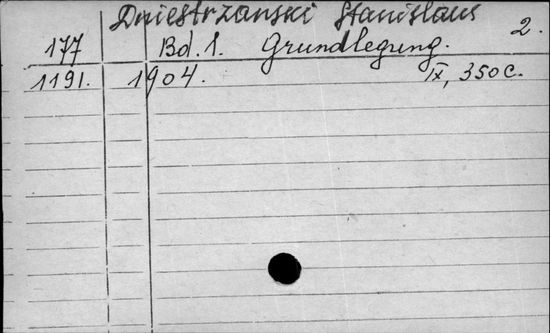 Dniestrzanski Stanislaus
2.
177 Bd. 1. Grundlegung.
1191. 1904. IX, 350 c.